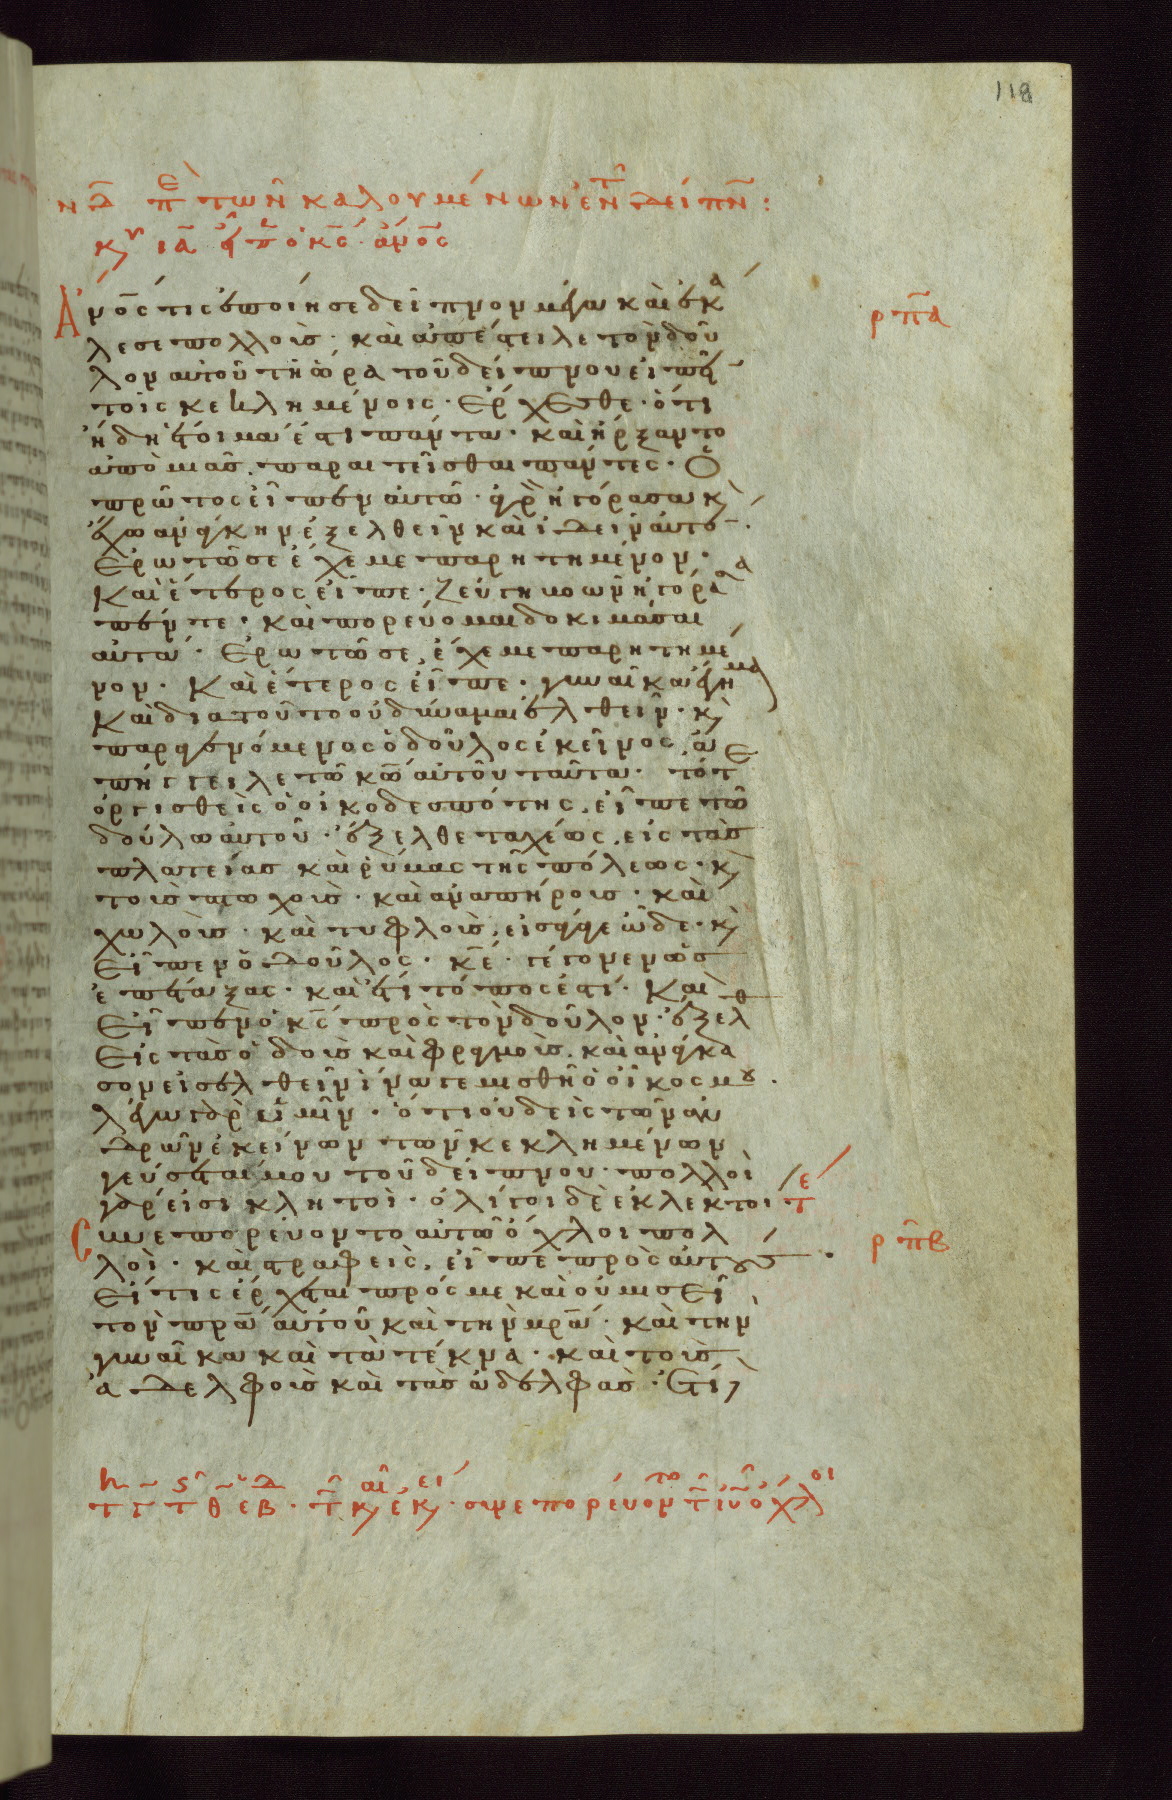 118
νδ πε των καλουμένων ἐν τ δείπν:
κυ ια εἶπ ὁ κς· ἄνος
Ἄνος τις ἐποίησε δεῖπνον μέγα καὶ ἐκά
ρπα
λεσε πολλοὺς· καὶ ἀπέστειλε τὸν δοῦ
λον αὐτοῦ τῆ ὥρα τοῦ δείπνου εἰπεῖν
τοῖς κεκλημένοις· Ἔρχεσθε· ὅτι
ἤδη ἕτοιμα ἐστι πάντα· καὶ ἤρξαντο
ἀπὸ μιᾶς παραιτεῖσθαι πάντες· Ὁ
πρῶτος εἶπεν αὐτῶ· ἀγρὸν ἠγόρασα κ
ἔχω ἀνάγκην ἐξελθεῖν καὶ ἰδεῖν αὐτόν·
Ἐρωτῶ σε ἔχε με παρητημένον·
Καὶ ἕτερος εἶπε· ζεύγη βοῶν ἠγόρασα
πέντε· καὶ πορεύομαι δοκιμάσαι
αὐτά· Ἐρωτῶ σε, ἔχε με παρητημέ
νον· Καὶ ἕτερος εἶπε· γυναῖκα ἔγημα
καὶ διατοῦτο οὐ δύναμαι ἐλθεῖν· κ
παραγενόμενος ὁ δοῦλος ἐκεῖνος, ἀ
πήγγειλε τῶ κω αὐτοῦ ταῦτα· τότε
ὀργισθεὶς ὁ οἰκοδεσπότης, εἶπε τῶ
δούλω αὐτοῦ· ἔξελθε ταχέως εἰς τὰς
πλατείας καὶ ῥύμας τῆς πόλεως· κ
τοὺς πτωχοὺς· καὶ ἀναπήρους· καὶ
χωλοὺς· καὶ τυφλοὺς, εἰσάγαγε ὧδε· κ
εἶπεν ὁ δοῦλος· κε· γέγονεν ὡς
ἐπέταξας· καὶ ἔτι τόπος ἐστί· Καὶ
εἶπεν ὁ κς πρὸς τὸν δοῦλον· ἔξελθε
εἰς τὰς ὁδοὺς καὶ φραγμοὺς· καὶ ἀνάγκα
σον εἰσελθεῖν ἵνα γεμισθῆ ὁ οἶκος μου·
λέγω γὰρ ὑμῖν· ὅτι οὐδεὶς τῶν ἀν
δρῶν ἐκείνων τῶν κεκλημένων
γεύσεταί μου τοῦ δείπνου· πολλοὶ
γάρ εἰσι κλητοὶ· ὀλίγοι δὲ ἐκλεκτοι· τέ
Συνεπορεύοντο αὐτῶ ὄχλοι πολ
ρπβ
λοὶ· καὶ στραφεὶς, εἶπε πρὸς αὐτούς·
Εἴ τις ἔρχεται πρός με καὶ οὐ μισεῖ
τὸν πρα αὐτοῦ καὶ τὴν μρα· καὶ τὴν
γυναῖκα καὶ τὰ τέκνα· καὶ τοὺς
ἀδελφοὺς καὶ τὰς ἀδελφὰς· ἔτι
τ θ εβ· τ κ ἐκ· συνεπορεύοντ τ ιυ ὄχλοι